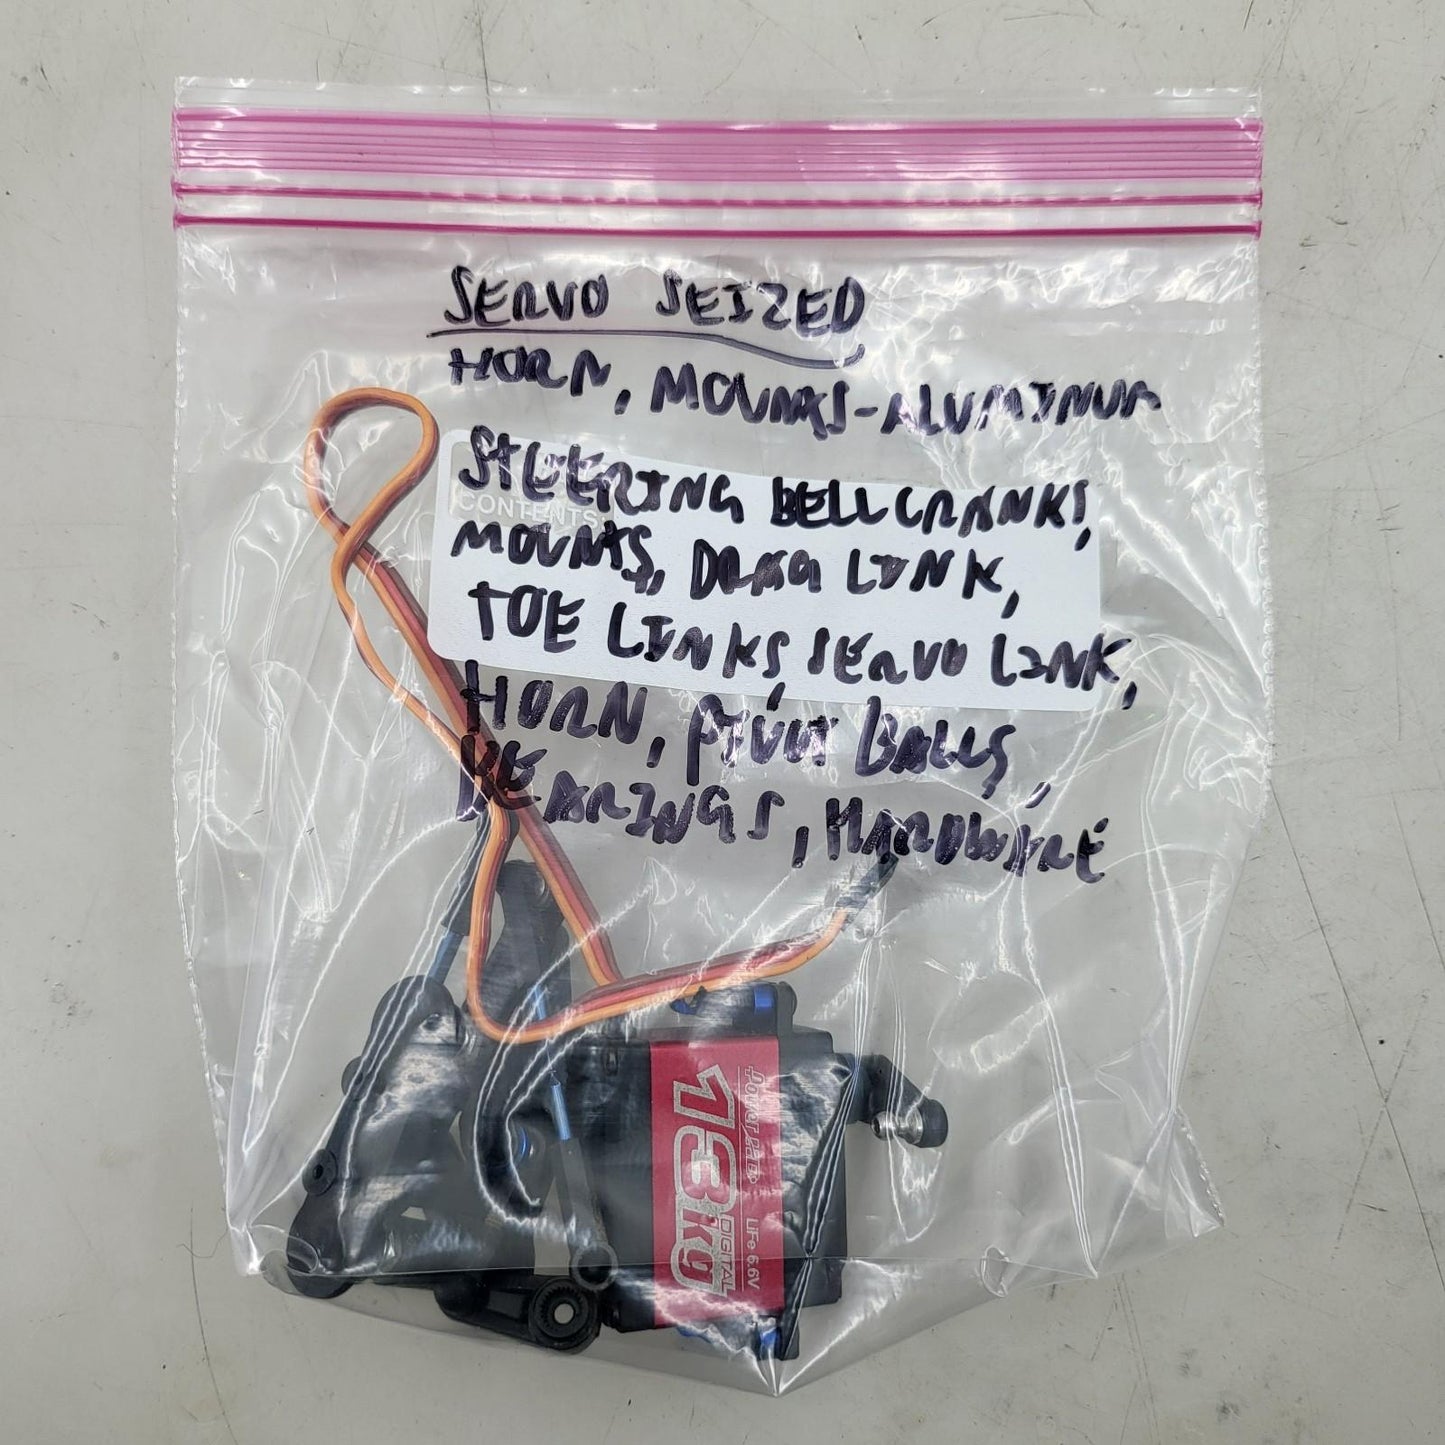 SERVO SEIZED
HORN, MOUNTS-ALUMINUM
STEERING BELLCRANKS,
CONTENTS
MOUNTS, DRAG LINK,
TOE LINKS, SERVO LINK,
HORN, PIVOT BALLS,
BEARINGS, HARDWARE
13kg
DIGITAL
LiFe 6.6V